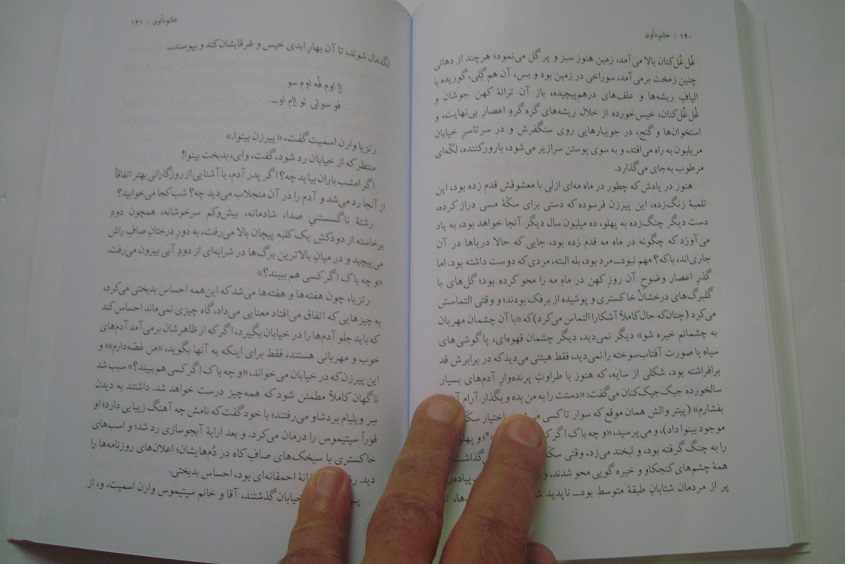 ۱۴۰ / خانم دلوی
غُل غُل‌کنان بالا می‌آمد، زمین هنوز سبز و پرگل می‌نمود؛ هرچند از دهانی
چنین زمخت برمی‌آمد، سوراخی در زمین بود و بس، آن هم گِلی، گوریده با
الیافِ ریشه‌ها و علف‌های درهم‌پیچیده، باز آن ترانهٔ کهن جوشان و
غُل‌غُل‌کنان، خیس‌خورده از خلال ریشه‌های گره‌گرهِ اعصارِ بی‌نهایت، و
استخوان‌ها و گنج، در جویبارهایی روی سنگفرش و در سرتاسر خیابان
مریلبون به راه می‌افتد، و به سوی یوستن سرازیر می‌شود، بارورکننده، لکّه‌ای
مرطوب به‌جای می‌گذارد.
هنوز در یادش که چطور در ماه مه‌ای ازلی با معشوقش قدم زده بود، این
تلمبهٔ زنگ‌زده، این پیرزن فرسوده که دستی برای سکّهٔ مسی دراز کرده،
دست دیگر چنگ‌زده به پهلو، ده میلیون سال دیگر آنجا خواهد بود، به یاد
می‌آورد که چگونه در ماه مه قدم زده بود، جایی که حالا دریاها در آن
جاری‌اند، باکه؟ مهم نبود — مرد بود، بله البته، مردی که دوست داشته بود. اما
گذرِ اعصار وضوحِ آن روزِ کهنِ ماهِ مه را محو کرده بود؛ گل‌های با
گلبرگ‌های درخشان خاکستری و پوشیده از برفک بودند؛ و وقتی التماسش
می‌کرد (چنان‌که حال کاملاً آشکارا التماس می‌کرد) که «با آن چشمان مهربان
به چشمانم خیره شو» دیگر نمی‌دید، دیگر چشمان قهوه‌ای، پاگوشی‌های
سیاه یا صورت آفتاب‌سوخته را نمی‌دید، فقط هیئتی می‌دید که در برابرش قد
برافراشته بود، شکلی از سایه، که هنوز با طراوتِ پرنده‌وارِ آدم‌های بسیار
سالخورده جیک‌جیک‌کنان می‌گفت: «دستت را به من بده و بگذار آرام
بفشارم» (پیتر والش همان موقع که سوار تاکسی می‌شد اختیار سکّه
موجود بینوا داد)، و می‌پرسید، «و چه باک اگر کسی و پهلو
را به چنگ گرفته بود، و لبخند می‌زد، وقتی سکّه گذاشت
همهٔ چشم‌های کنجکاو و خیره گویی محو شدند، و پیاده‌رو
پر از مردمان شتابانِ طبقهٔ متوسط بود — ناپدید
خانم دلوی / ۱۴۱
لگدمال شوند، تا آن بهارِ ابدی خیس و غرقابشان کند و بپوسند —
اِا اوم فَه اوم سو
فو سوئی تو اِام او —
رتزیا وارن اسمیت گفت، «پیرزن بینوا.»
منتظر که از خیابان رد شود، گفت، وای، بدبخت بینوا!
اگر امشب باران بیاید چه؟ اگر پدر آدم، یا آشنایی از روزگارانی بهتر اتفاقاً
از آنجا رد می‌شد و آدم را در آن منجلاب می‌دید چه؟ شب کجا می‌خوابید؟
رشتهٔ ناگسستنیِ صدا، شادمانه، بیش‌وکم سرخوشانه، همچون دودِ
برخاسته از دودکش یک کلبه پیچان بالا می‌رفت، به دور درختانِ صافِ راش
می‌پیچید و در میانِ بالاترین برگ‌ها در شرابه‌ای از دود آبی بیرون می‌رفت.
«و چه باک اگر کسی هم ببیند؟»
رتزیا، چون هفته‌ها و هفته‌ها می‌شد که این‌همه احساس بدبختی می‌کرد،
به چیزهایی که اتفاق می‌افتاد معنایی می‌داد، گاه چیزی نمی‌ماند احساس کند
که باید جلو آدم‌ها را در خیابان بگیرد، اگر که از ظاهرشان برمی‌آمد آدم‌های
خوب و مهربانی هستند، فقط برای اینکه به آنها بگوید، «من غصه‌دارم»؛ و
این پیرزن که در خیابان می‌خواند، «و چه باک اگر کسی هم ببیند؟» سبب شد
ناگهان کاملاً مطمئن شود که همه‌چیز درست خواهد شد. داشتند به دیدنِ
سِر ویلیام بردشاو می‌رفتند؛ با خود گفت که نامش چه آهنگ زیبایی دارد؛ او
فوراً سپتیموس را درمان می‌کرد. و بعد ارابهٔ آبجوسازی رد شد؛ و اسب‌های
خاکستری با سیخک‌های صافِ کاه در دُم‌هایشان؛ اعلان‌های روزنامه‌ها را
دید. احمقانه‌ای بود، احساس بدبختی.
خیابان گذشتند، آقا و خانم سپتیموس وارن اسمیت، و، از